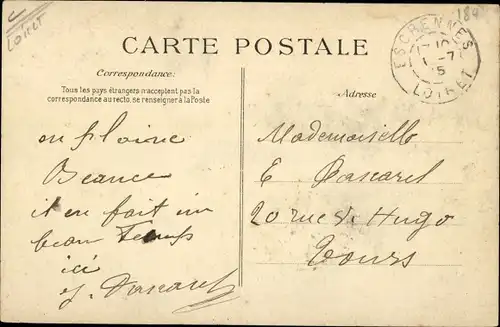 LOIRET
189
CARTE POSTALE
ESCRENNES
10
1 -7
5
LOIRET
Correspondance:
Tous les pays étrangers n'acceptent pas la
correspondance au recto, se renseigner à la Poste
Adresse
en plaine
Beauce
il en fait un
beau Temps
ici
Mademoiselle
E
20 rue V. Hugo
Tours